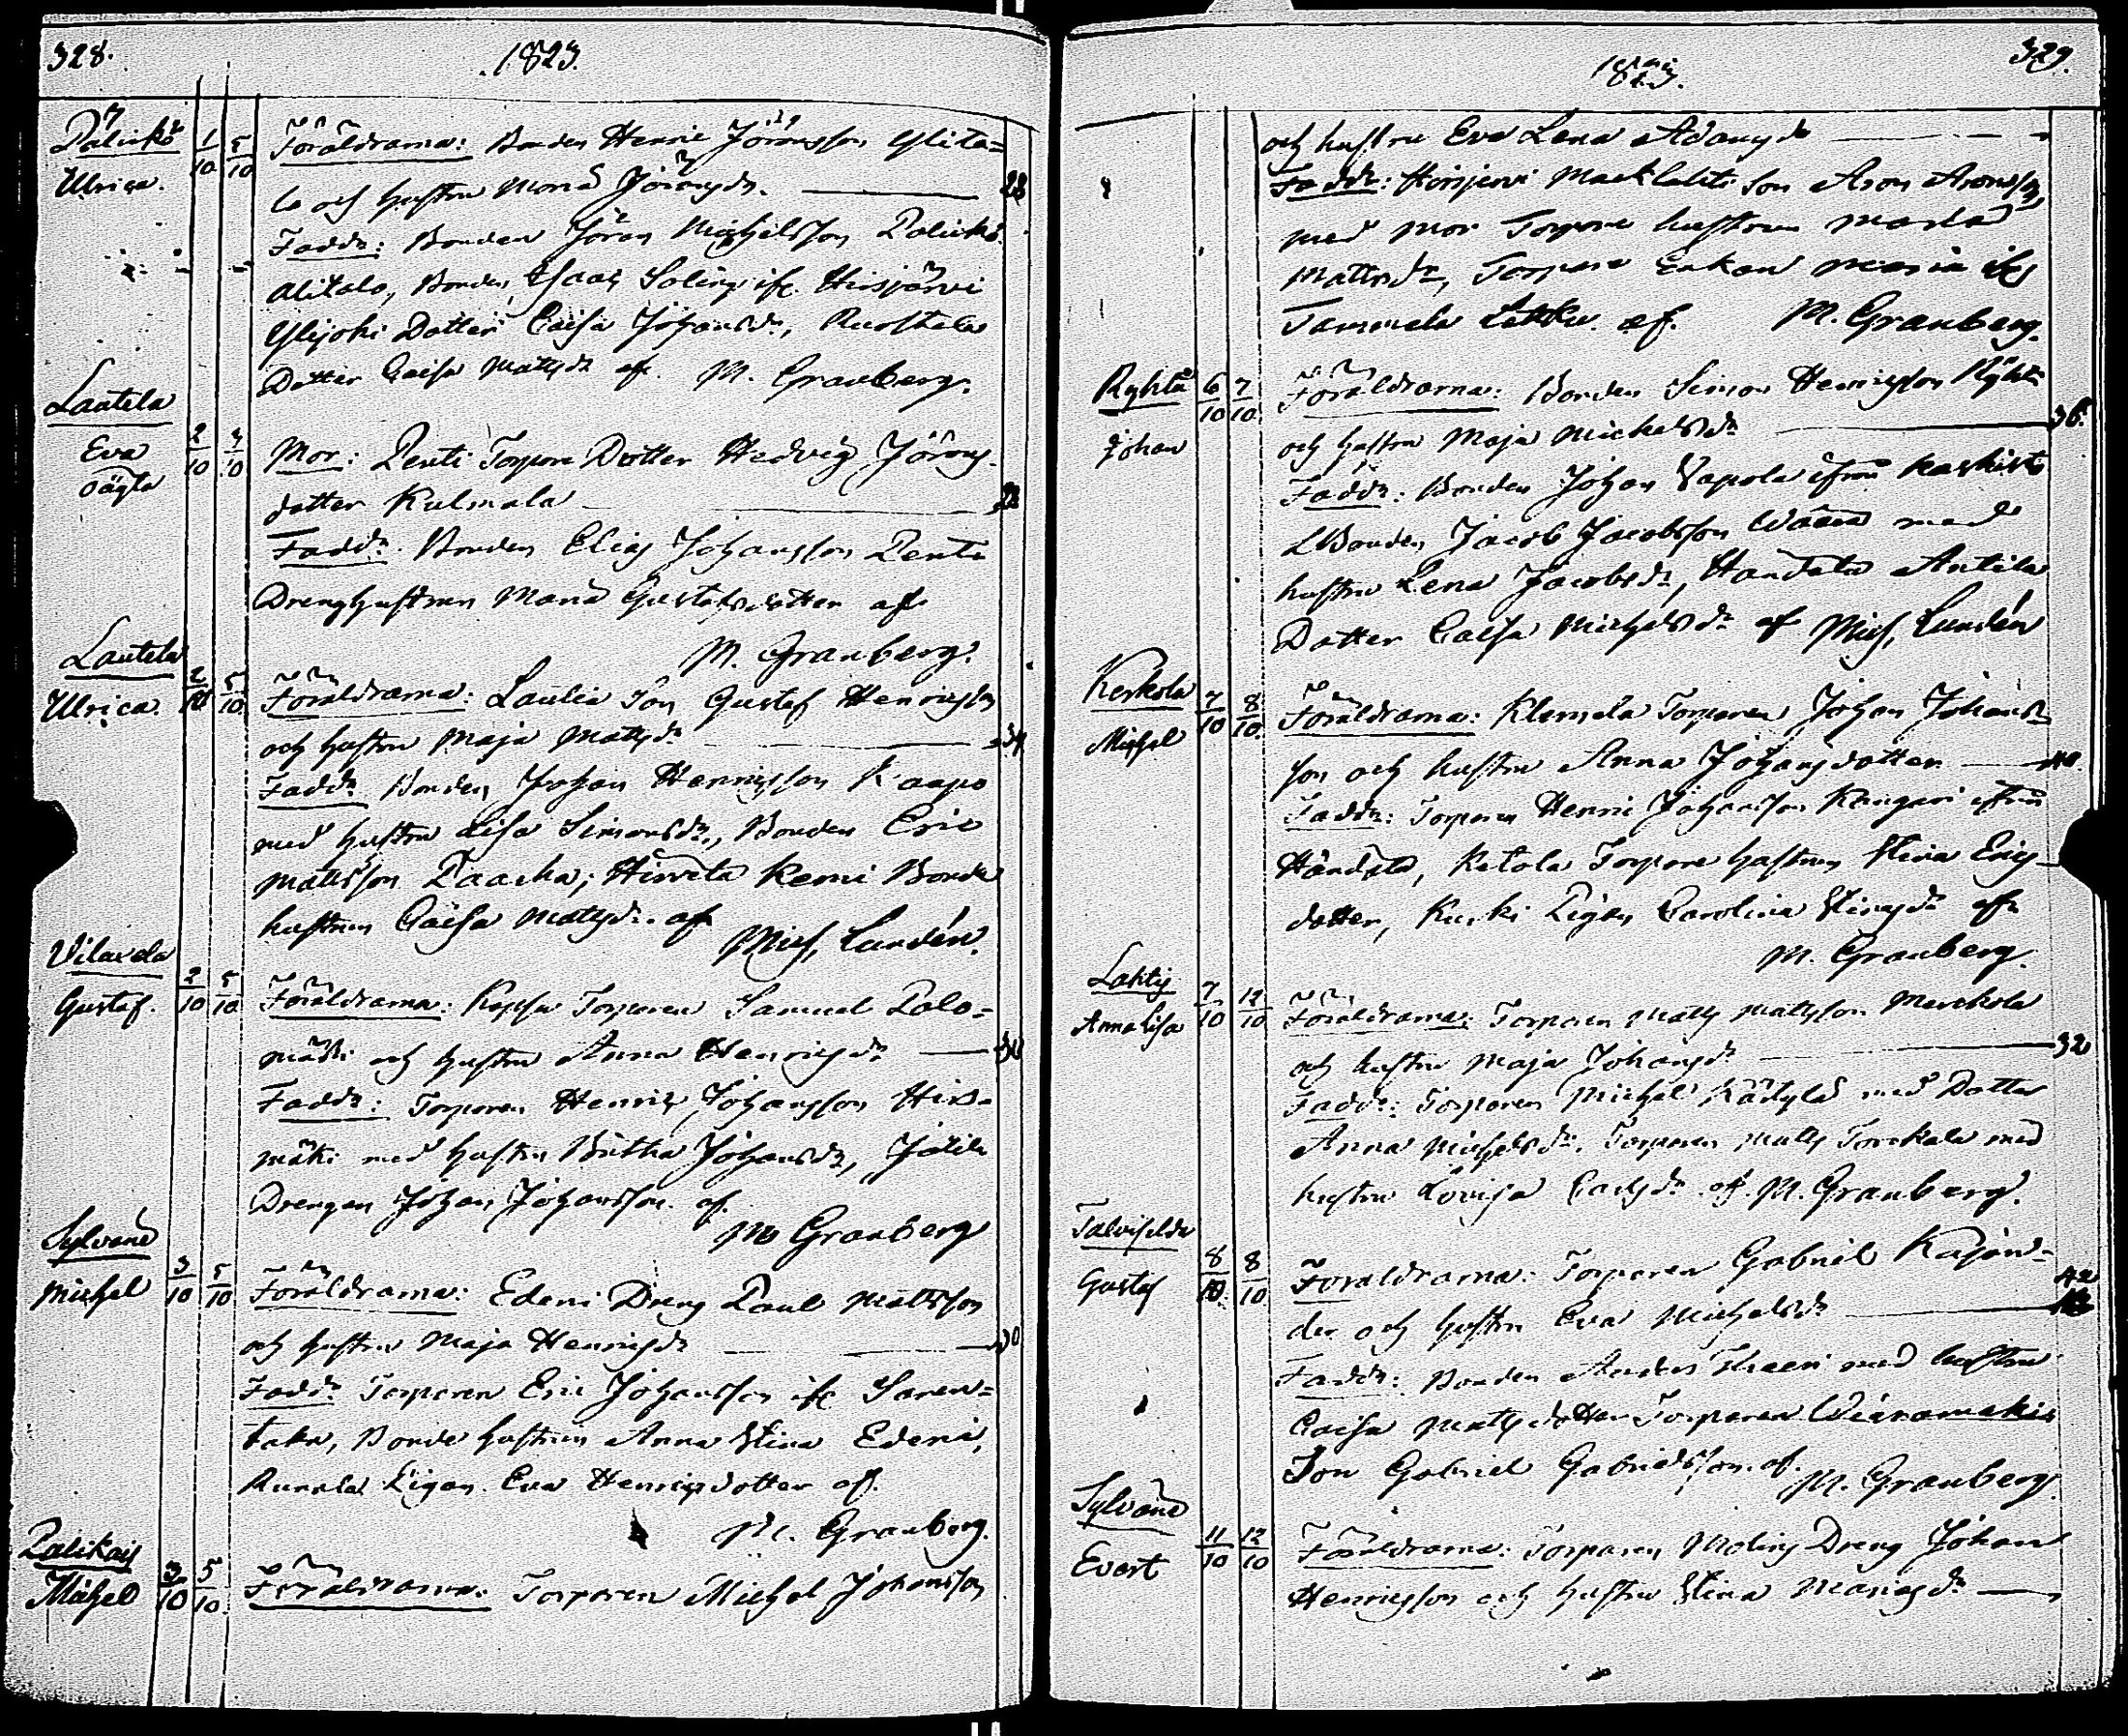 328.
1823.
Palickö
Ulrica.
1/10 5/10
Föräldrarna: Bonden Henric Jöransson Ylita=
lo och hustru Maria Jöransdr. 28
Faddr: Bonden Jöran Michelsson Palickö
Alitalo, Bonden Isaac Salin ifr. Hirsjärvi
Ylijoki Dotter Caisa Johansdr, Ruostela
Dotter Caisa Mattsdr af. M. Granberg.
Lautela
Eva
oägta
2/10 3/10
Mor: Penti Torpare Dotter Hedvig Jörans-
dotter Kulmala 22
Faddr. Bonden Elias Johansson Penti
Drenghustrun Maria Gustafsdotter af
M. Granberg.
Lautela
Ulrica.
2/10 5/10
Föräldrarna: Laulia Son Gustaf Henricsson
och hustru Maja Mattsdr 34
Faddr Bonden Johan Henricsson Kaapo
med hustru Lisa Simonsdr, Bonden Eric
Mattsson Paacka; Hirvelä Remi Bonde
hustrun Caisa Mattsdr. af
Mich. Lundén.
Vilaxela
Gustaf.
2/10 5/10
Föräldrarna: Torparen Samuel Palo=
mäki och hustru Anna Henricsdr 30
Faddr: Torparen Henric Johansson His-
mäki med hustru Britha Johansdr,
Drengen Johan Johansson. af.
M. Granberg
Sylvänä
Michel
3/10 5/10
Föräldrarna: Edeni Dreng Paul Mattsson
och hustru Maja Henricsdr 30
Faddr Torparen Eric Johansson ifr Saren=
taka, Bonde hustrun Anna Stina Edeni,
Runala Pigan Eva Henricsdotter af.
M. Granberg.
Palikais
Michel
3/10 5/10
Föräldrarna: Torparen Michel Johansson
329.
1823.
och hustru Eva Lena Adamsdr
Faddr: Hirsjervi Son Aron Aronsson,
med mor Torpare hustrun Maria
Mattsdr, Torpare Enkan Maria ifrån
Tammela Lekku. af. M. Granberg.
Ryhtä
Johan
6/10 7/10
Föräldrarna: Bonden Simon Henricsson Ryhtä
och hustru Maja Michelsdr 36.
Faddr: Bonden Johan Vapola ifrån Kaskisto
Bonden Jacob Jacobsson med
hustru Lena Jacobsdr, Handela Antila
Dotter Caisa Michelsdr af Mich. Lundén
Kerkola
Michel
7/10 8/10
Föräldrarna: Klemelä Torparen Johan Johans
son och hustru Anna Johansdotter 40.
Faddr: Torparen Henric Johansson Kangari ifrån
Händälä, Ketola Torpare hustrun Stina Erics-
dotter, Kurki Pigan Carolina Stinasdr af
M. Granberg.
Laktis
Anna Lisa
7/10 12/10
Föräldrarna: Torparen Matts Mattsson Merckola
och hustru Maja Johansdr 32
Faddr: Torparen Michel Kädylä med Dotter
Anna Michelsdr. Torparen Matts Torckala med
hustru Lovisa Carlsdr. af. M. Granberg.
Talvisilda
Gustaf
8/10 8/10
Föräldrarna: Torparen Gabriel Kajan=
der och hustru Eva Michelsdr 42
Faddr: Bonden Anders med hustru
Caisa Mattsdotter Torparen Wäramäki
Son Gabriel Gabrielsson. af. M. Granberg.
Sylvänä
Evert
11/10 12/10
Föräldrarna: Torparen Molins Dreng Johan
Henricsson och hustru Stina Mariasdr